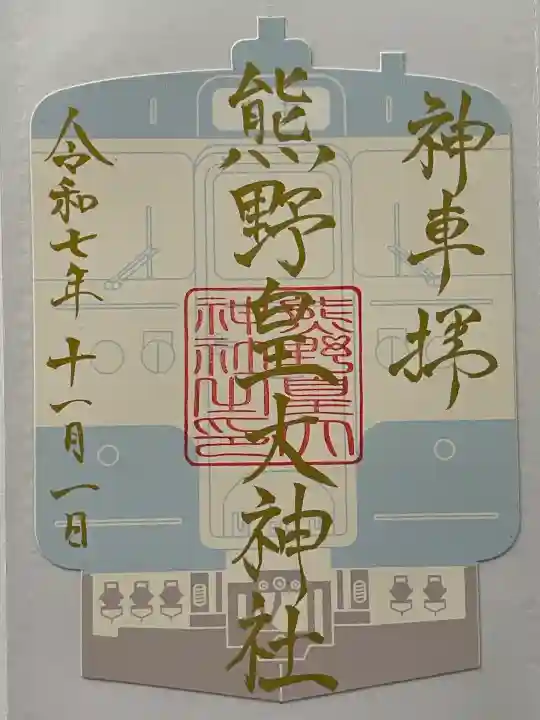 神車拝
熊野皇大神社
熊野皇大
神社之印
令和七年 十一月一日